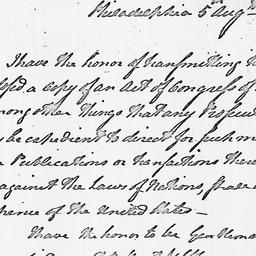 Philadelphia 5th Augt
I have the honor of transmitting
a copy of an Act of Congress of
among other things that any
be expedient to direct for such
Publications or transactions there
against the Laws of Nations, shall
of the United States —
I have the honor to be Gentlemen